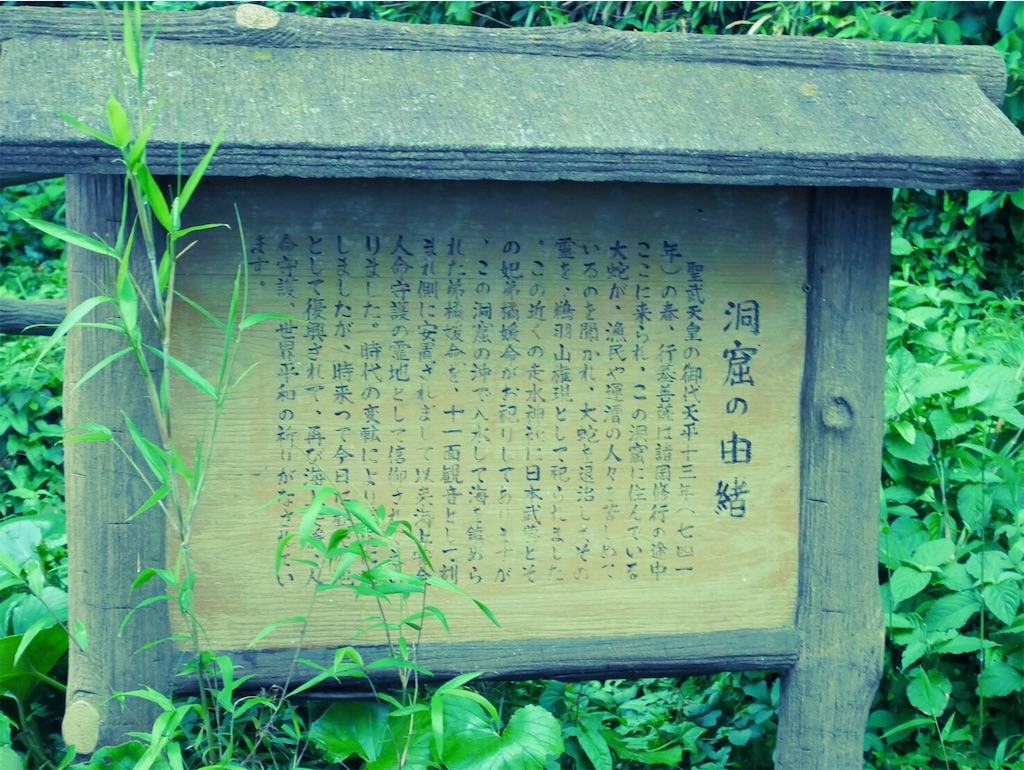 洞窟の由緒
聖武天皇の御代天平十三年(七四一
年)の春、行基菩薩は諸国修行の途中
ここに来られ、この洞窟に住んでいる
大蛇が、漁民や運漕の人々を苦しめて
いるのを聞かれ、大蛇を退治しその
霊を、鵜羽山権現として祀られました
。この近くの走水神社に日本武尊とそ
の妃弟橘媛命がお祀りしてありますが
、この洞窟の沖で入水して海を鎮めら
れた弟橘媛命を、十一面観音として刻
まれ側に安置されまして以来海上安全
人命守護の霊地として信仰され
りました。時代の変転により
しましたが、時来つて今日に
として復興されて、再び海 人
命守護、世界平和の祈りがなされてい
ます。